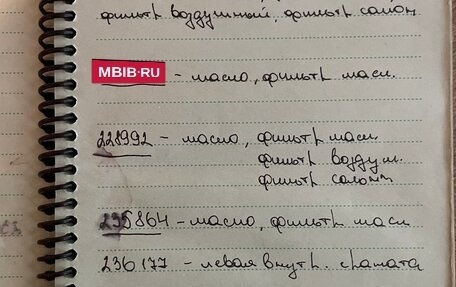 фильтр воздушный, фильтр салон
MBIB.RU - масло, фильтр масл.
228992 - масло, фильтр масл.
фильтр воздуш.
фильтр салонн
235864 - масло, фильтр масл
236177 - левая внутр. граната